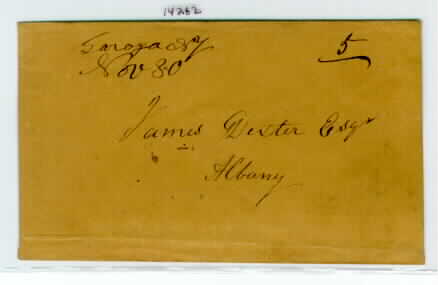 14262
Garoga NY
Nov 30
5
James Dexter Esqr
Albany